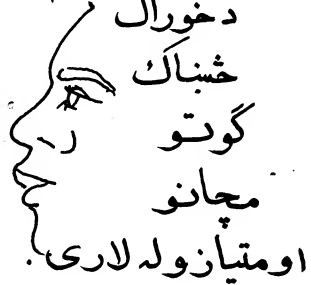 د خوراك
څښاك
گوتو
مچانو
او متیازو له لارى.